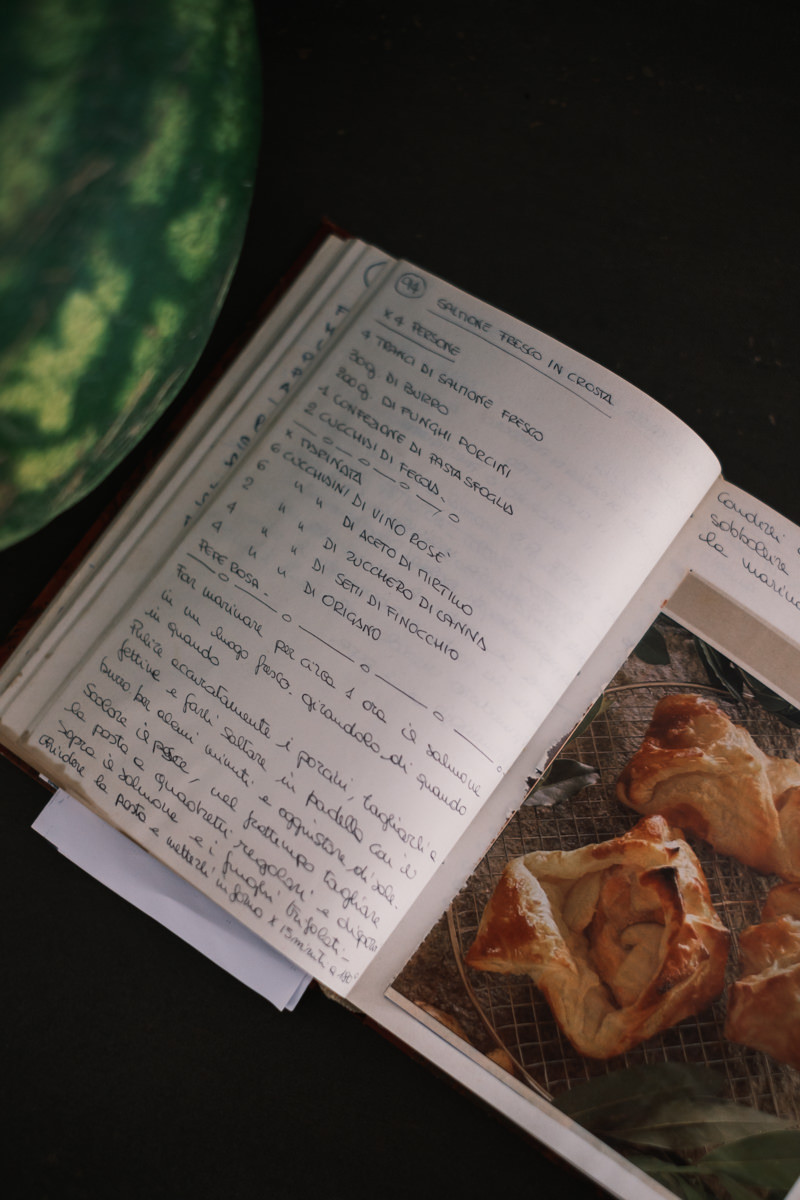 94 SALMONE FRESCO IN CROSTA
X 4 PERSONE
4 TRANCI DI SALMONE FRESCO
30g. DI BURRO
300g. DI FUNGHI PORCINI
1 CONFEZIONE DI PASTA SFOGLIA
2 CUCCHIAI DI FECOLA.
X MARINATA
6 CUCCHIAINI DI VINO ROSE'
6 " " DI ACETO DI MIRTILLO
2 " " DI ZUCCHERO DI CANNA
4 " " DI SEMI DI FINOCCHIO
4 " " DI ORIGANO
PEPE ROSA.
Far marinare per circa 1 ora il salmone
in un luogo fresco. girandolo di quando
in quando
Pulire accuratamente i porcini, tagliarli a
fettine e farli saltare in padella con il
burro per alcuni minuti. e aggiustare di sale.
Scolare il pesce, nel frattempo tagliare
la pasta a quadretti regolari e disporre
sopra il salmone e i funghi trifolati.-
Chiudere la pasta e metterli in forno x 15 minuti a 180°
sobbollire
la marin